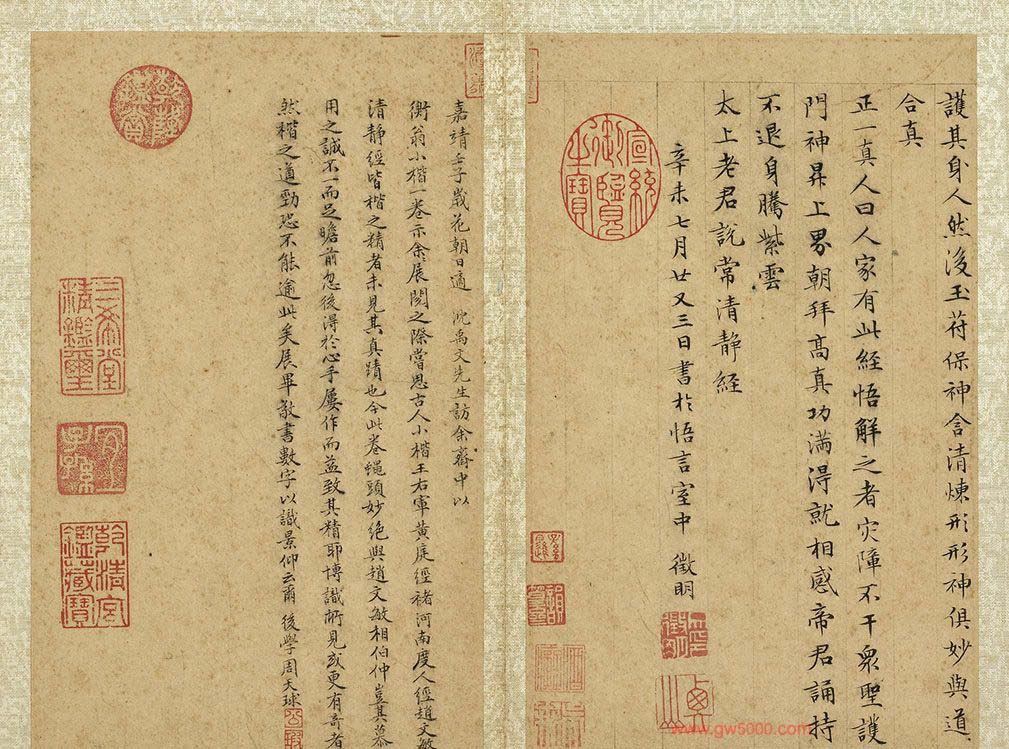 護其身人然後玉符保神含清煉形形神俱妙與道
合真
正一真人曰人家有此經悟解之者灾障不干眾聖護
門神昇上界朝拜髙真功滿得就相感帝君誦持
不退身騰紫雲
太上老君說常清静經
辛未七月廿又三日書於悟言室中 徵明
宣統御覽之寶
嘉靖壬子歲花朝日適 沈禹文先生訪余齋中以
衡翁小楷一卷示余展閱之際嘗思古人小楷王右軍黃庭經褚河南度人經趙文敏
清静經皆楷之精者未見其真蹟也今此卷蠅頭妙絕與趙文敏相伯仲豈其慕
用之誠不一而足瞻前忽後得於心手屢作而益致其精耶博識所見或更有奇者
然楷之遒勁恐不能逾此矣展畢敬書數字以識景仰云爾 後學周天球
乾隆鑑賞
三希堂精鑑璽
宜子孫
乾清宮鑑藏寶
www.gw5000.com